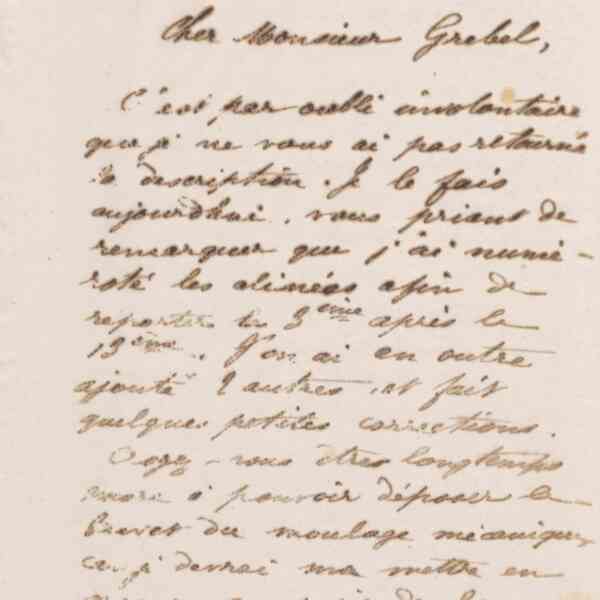 Cher Monsieur Grebel,
C'est par oubli involontaire
que je ne vous ai pas retourné
la description. Je le fais
aujourd'hui, vous priant de
remarquer que j'ai numé-
roté les alinéas afin de
reporter le 3ème après le
13ème. J'en ai en outre
ajouté 2 autres et fait
quelques petites corrections.
vous être longtemps
encore à pouvoir déposer le
brevet du moulage mécanique,
car je devrai me mettre en